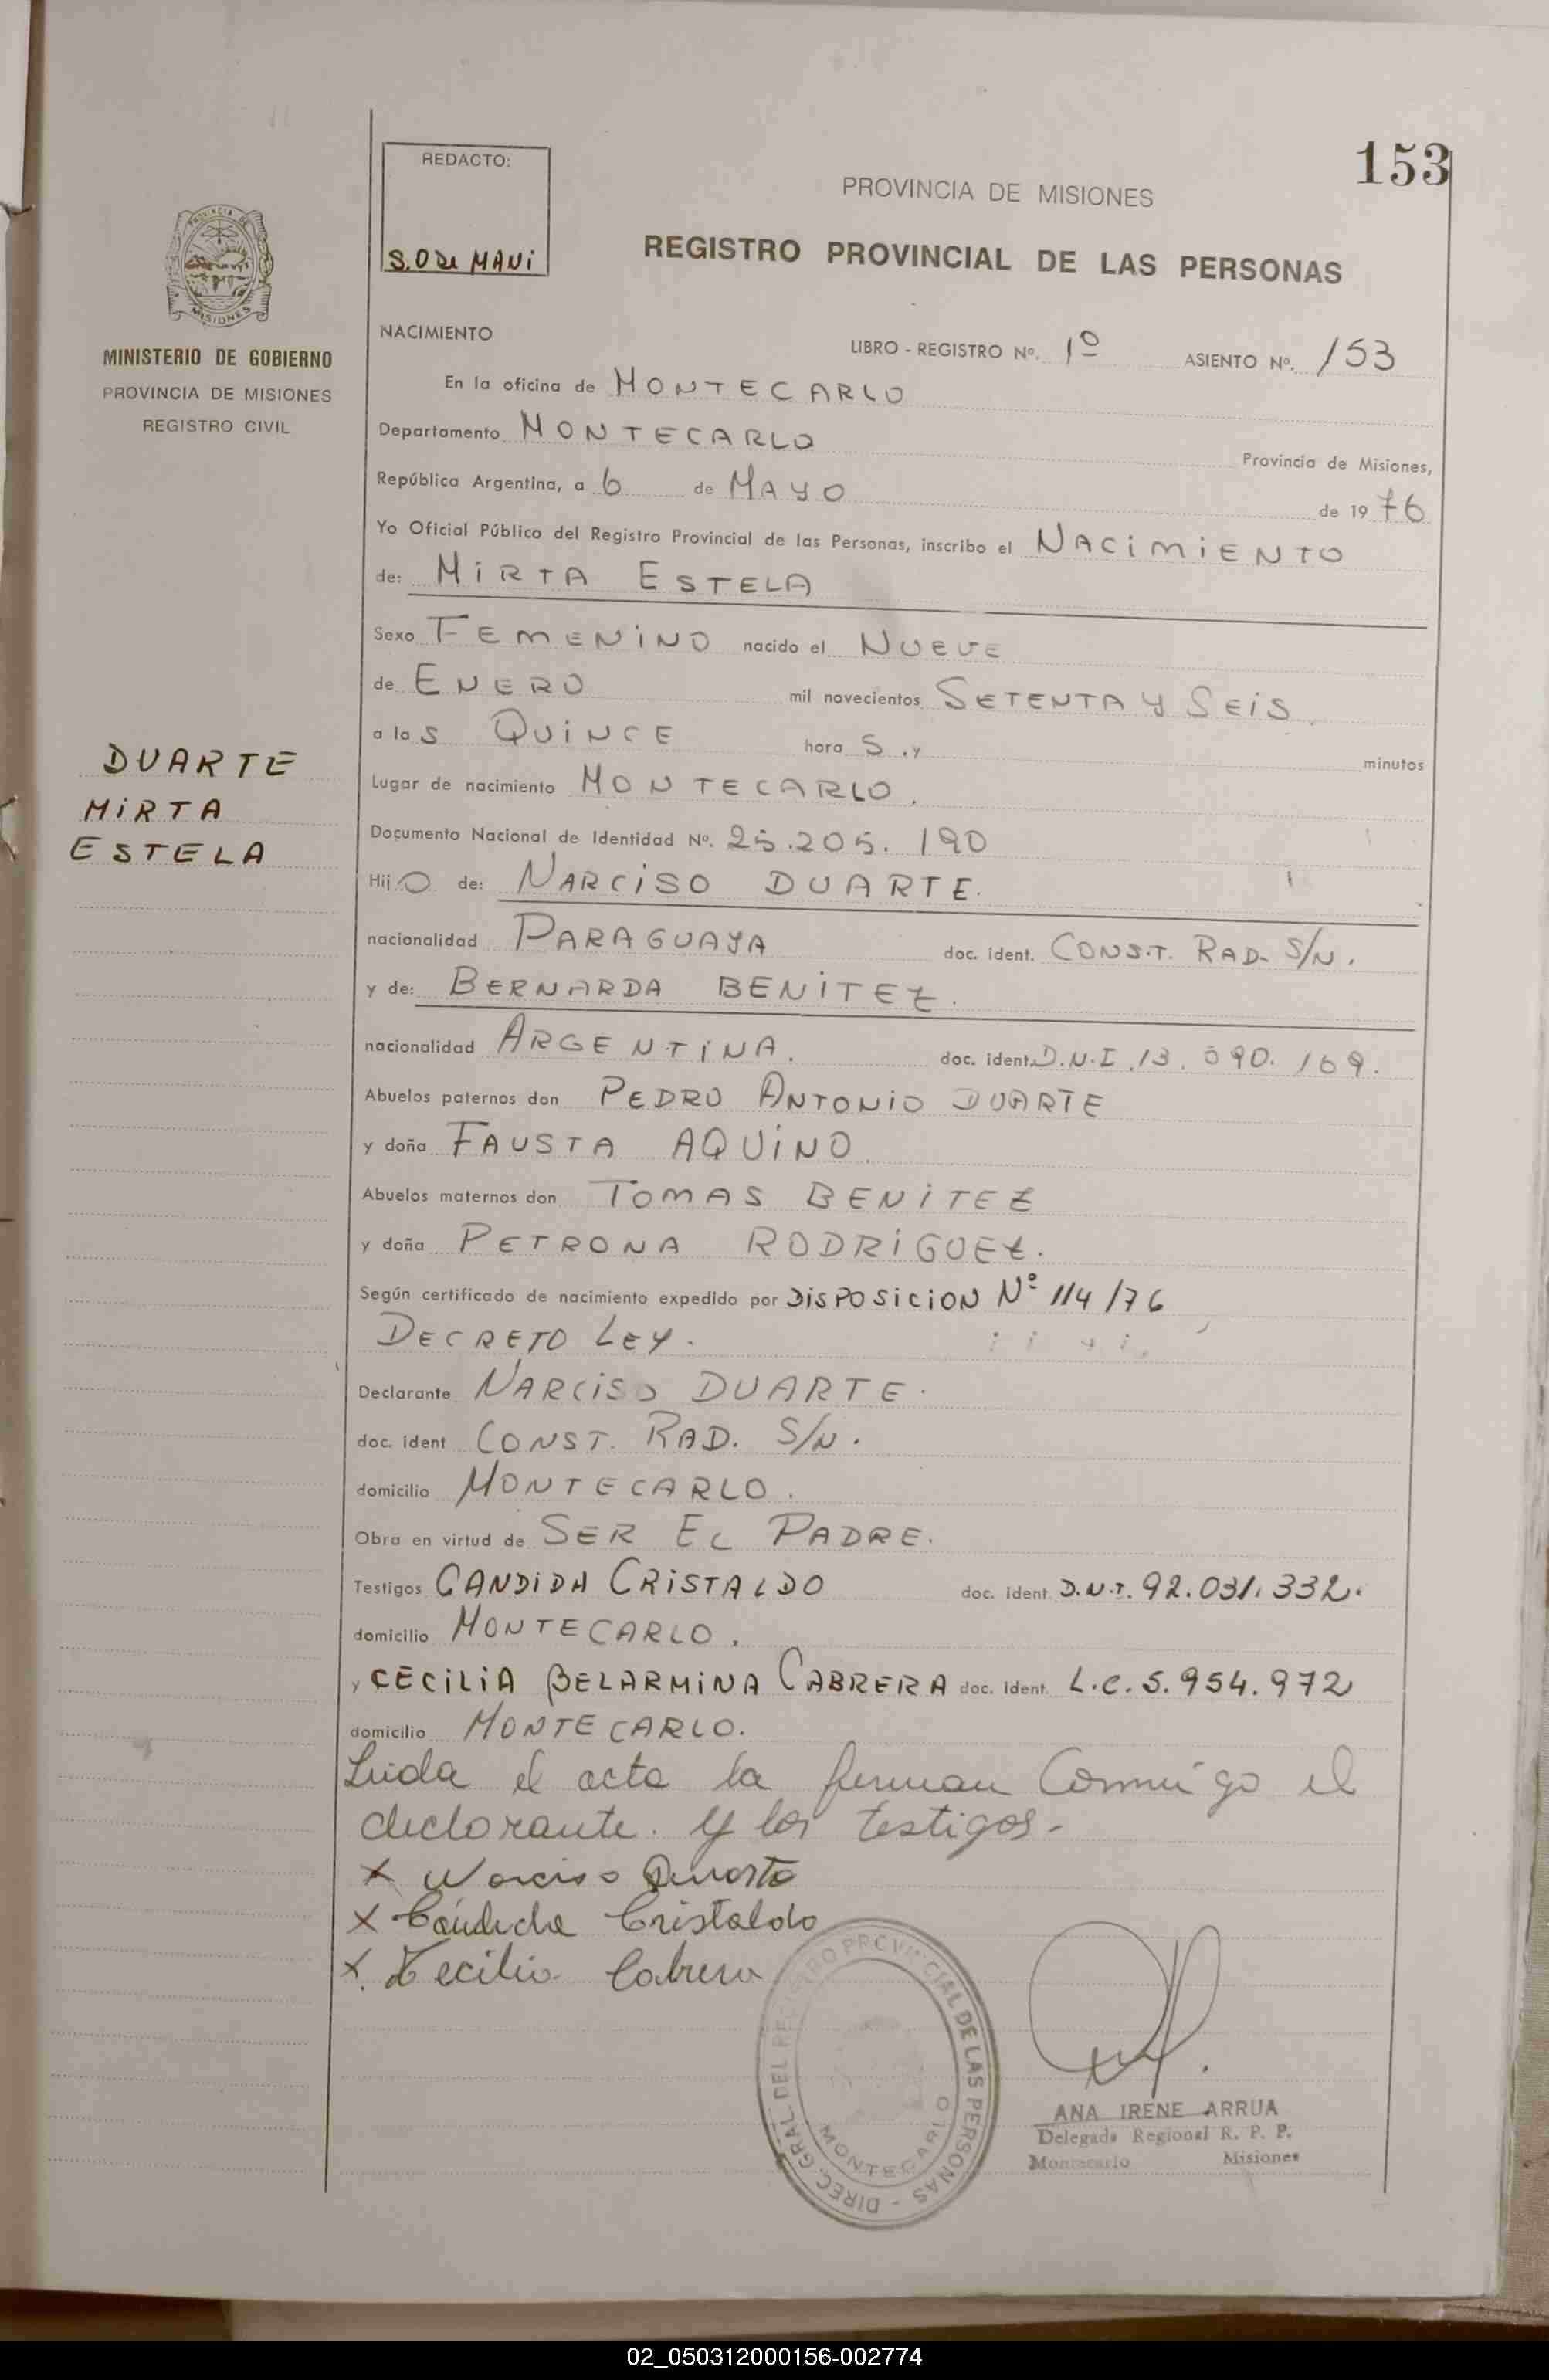 153
REDACTO:
S.O de MANi
PROVINCIA DE MISIONES
REGISTRO PROVINCIAL DE LAS PERSONAS
PROVINCIA DE
MISIONES
MINISTERIO DE GOBIERNO
PROVINCIA DE MISIONES
REGISTRO CIVIL
NACIMIENTO
LIBRO - REGISTRO Nº. 1º ASIENTO Nº. 153
En la oficina de MONTECARLO
Departamento MONTECARLO Provincia de Misiones,
República Argentina, a 6 de MAYO de 1976
Yo Oficial Público del Registro Provincial de las Personas, inscribo el NACiMiENTO
de: MiRTA ESTELA
Sexo FEMENiNO nacido el NUEVE
de ENERO mil novecientos SETENTA Y SEiS.
a las QUiNCE horas .y minutos
Lugar de nacimiento MONTECARLO.
DUARTE
MiRTA
ESTELA
Documento Nacional de Identidad Nº. 25.205.190
Hijo de: NARCiSO DUARTE.
nacionalidad PARAGUAYA doc. ident. CONST. RAD. S/N.
y de: BERNARDA BENiTEZ.
nacionalidad ARGENTiNA. doc. ident. D.N.I. 13.090.169.
Abuelos paternos don PEDRO ANTONiO DUARTE
y doña FAUSTA AQUiNO.
Abuelos maternos don TOMAS BENiTEZ
y doña PETRONA RODRiGUEZ.
Según certificado de nacimiento expedido por DiSPOSiCiON Nº 114/76
DECRETO LEY.
Declarante NARCiSO DUARTE.
doc. ident CONST. RAD. S/N.
domicilio MONTECARLO.
Obra en virtud de SER EL PADRE.
Testigos CANDiDA CRiSTALDO doc. ident. D.N.I. 92.031.332.
domicilio MONTECARLO.
y CECiLiA BELARMiNA CABRERA doc. Ident. L.C. 5.954.972
domicilio MONTECARLO.
Leida el acta la firman Conmigo el
declarante. y los testigos.
x Narciso Duarte
x Candida Cristaldo
x. Cecilia Cabrera
DIREC. GRAL. DEL REGISTRO PROVINCIAL DE LAS PERSONAS -
MONTECARLO
ANA IRENE ARRUA
Delegada Regional R. P. P.
Montecarlo Misiones
02_050312000156-002774